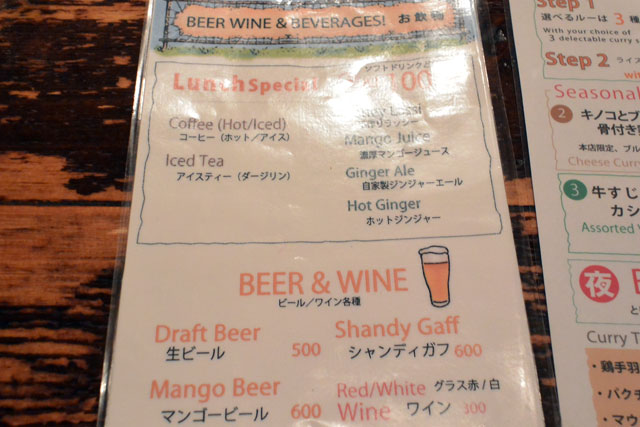 BEER WINE & BEVERAGES! お飲物
Lunch Special
ソフトドリンク
100
Coffee (Hot/Iced)
コーヒー（ホット／アイス）
Iced Tea
アイスティー（ダージリン）
Lassi
Mango Juice
濃厚マンゴージュース
Ginger Ale
自家製ジンジャーエール
Hot Ginger
ホットジンジャー
BEER & WINE
ビール／ワイン各種
Draft Beer
生ビール 500
Shandy Gaff
シャンディガフ 600
Mango Beer
マンゴービール 600
Red/White グラス赤/白
Wine ワイン 300
Step 1
選べるルーは 3
With your choice of
3 delectable curry s
Step 2 ライス
wi
Seasonal
2 キノコとブ
骨付き
本店限定、ブル
Cheese Curr
3 牛すじ
カシ
Assorted
夜
Curry T
・鶏手羽
・パクチ
・マウ